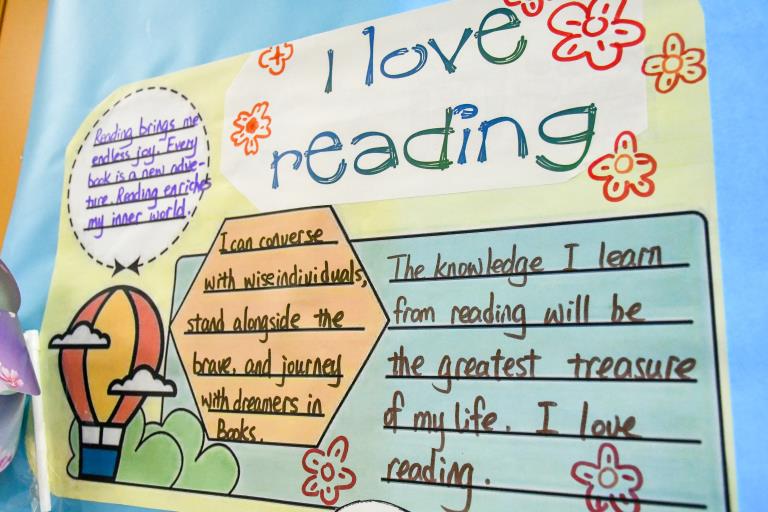 I love
reading
Reading brings me
endless joy. Every
book is a new adve-
ture. Reading enriches
my inner world.
I can converse
with wise individuals,
stand alongside the
brave, and journey
with dreamers in
Books.
The knowledge I learn
from reading will be
the greatest treasure
of my life. I love
reading.